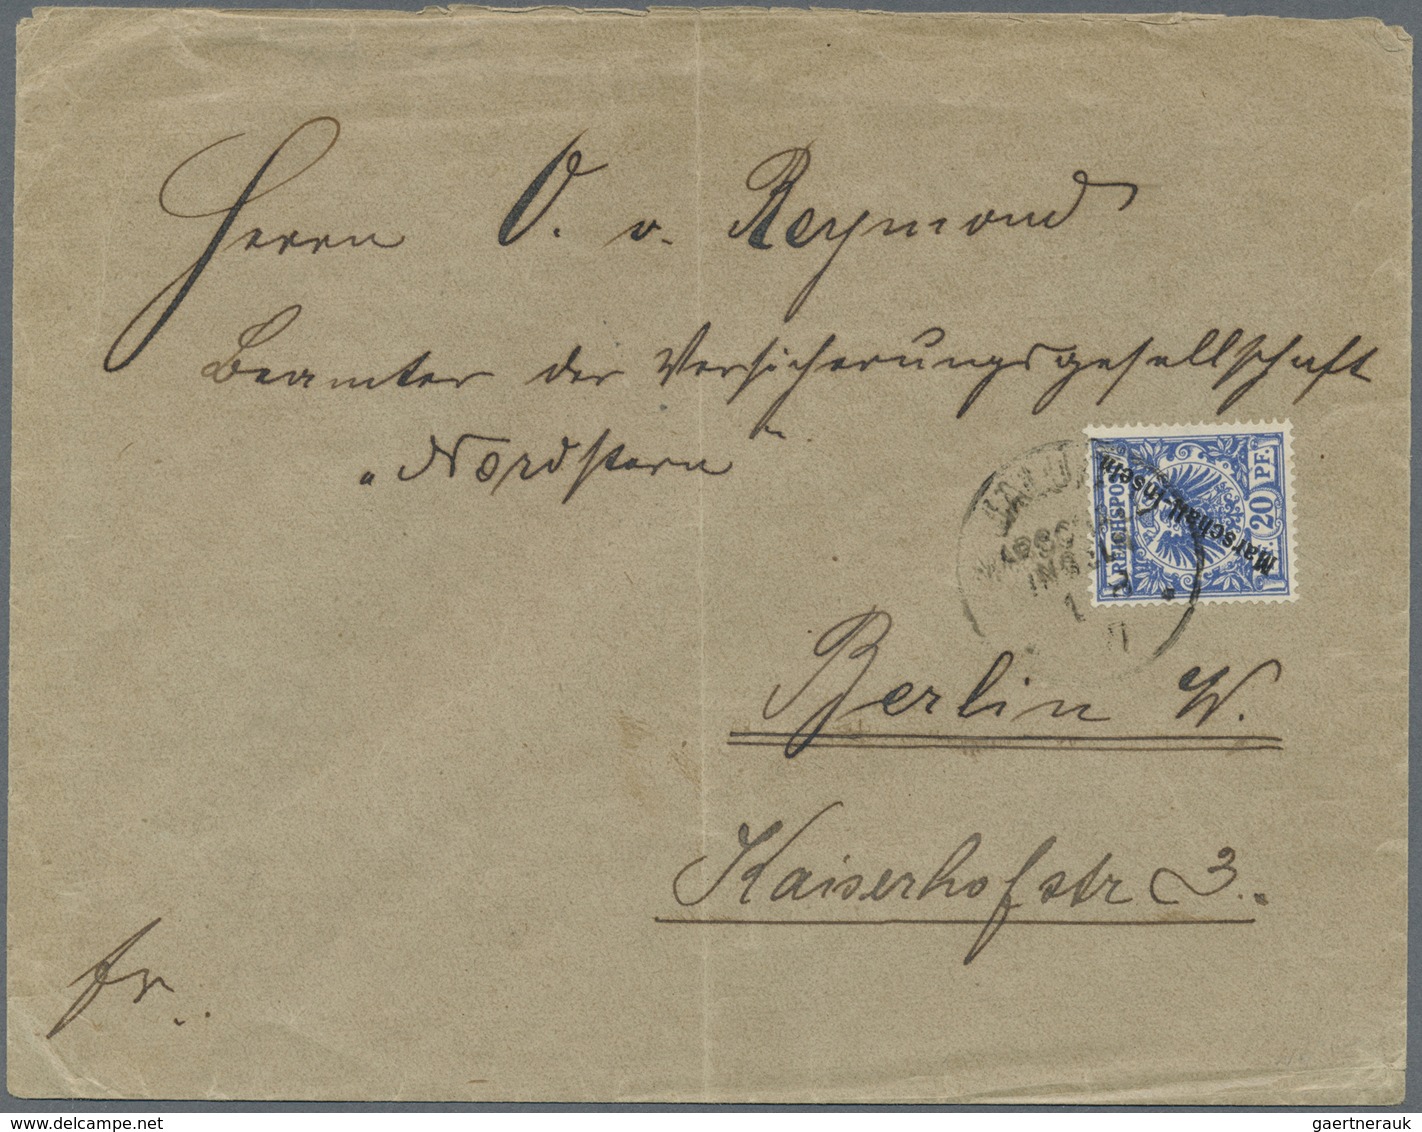 Herrn O. v. Reymond
Beamter der Versicherungsgesellschaft
„Nordstern“
REICHSPOST
20 PF.
Marschall-Inseln
JALUIT
MARSCHALL
INSELN
Berlin W.
Kaiserhofstr 3.
fr.
gaertnerauk